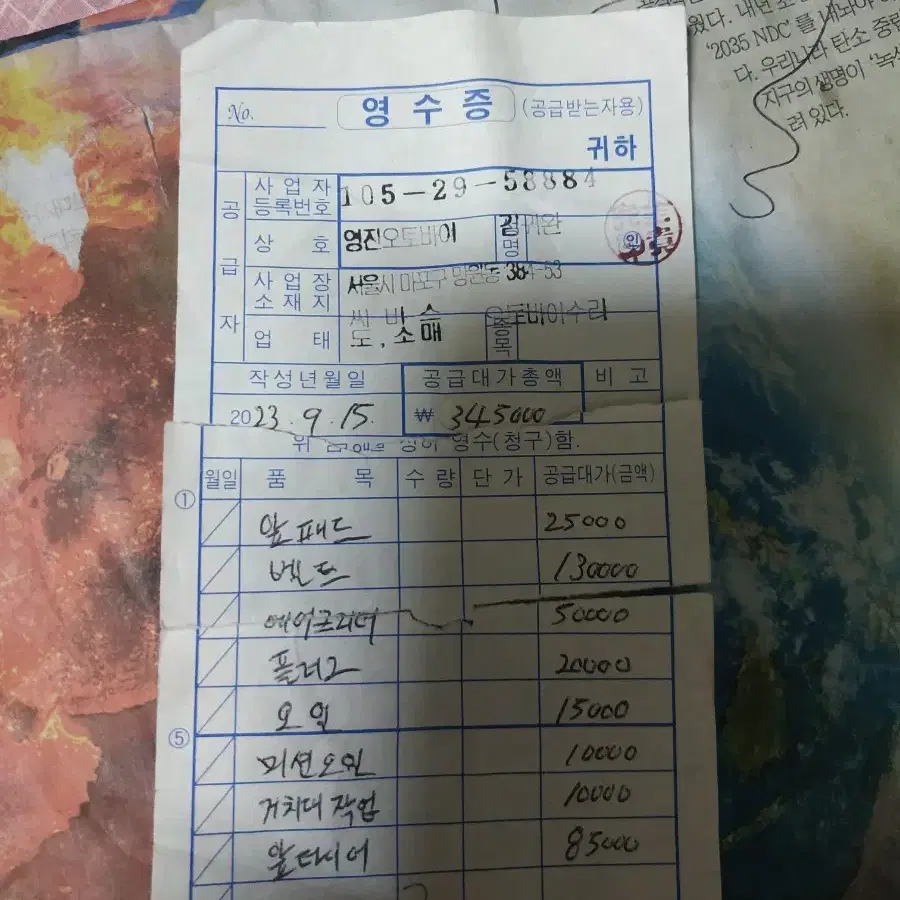 웠다. 내년 초
'2035 NDC'를 내놔야
다. 우리나라 탄소 중립
지구의 생명이 '녹색
려 있다.
No. 영수증 (공급받는자용)
귀하
공급자
사업자등록번호 105-29-58884
상호 영진오토바이 성명 인
사업장소재지 서울시 마포구 망원동
업태 도,소매 종목 오토바이수리
작성년월일 공급대가총액 비고
2023.9.15. ₩ 345000
위 영수(청구)함.
월일 품목 수량 단가 공급대가(금액)
① 앞패드 25000
벨트 130000
에어크리너 50000
플러그 20000
⑤ 오일 15000
미션오일 10000
거치대 작업 10000
앞타이어 85000